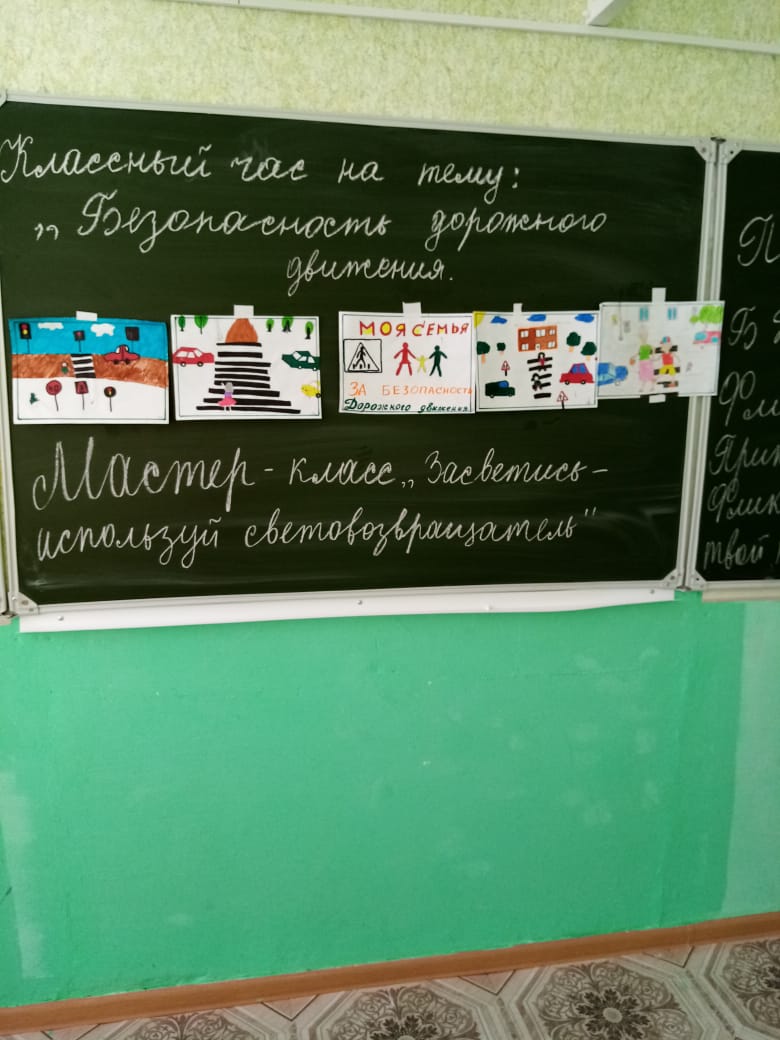 Классный час на тему:
„Безопасность дорожного
движения.
МОЯ СЕМЬЯ
ЗА БЕЗОПАСНОСТЬ
Дорожного движения
Мастер-класс „Засветись-
используй световозвращатель"
твой